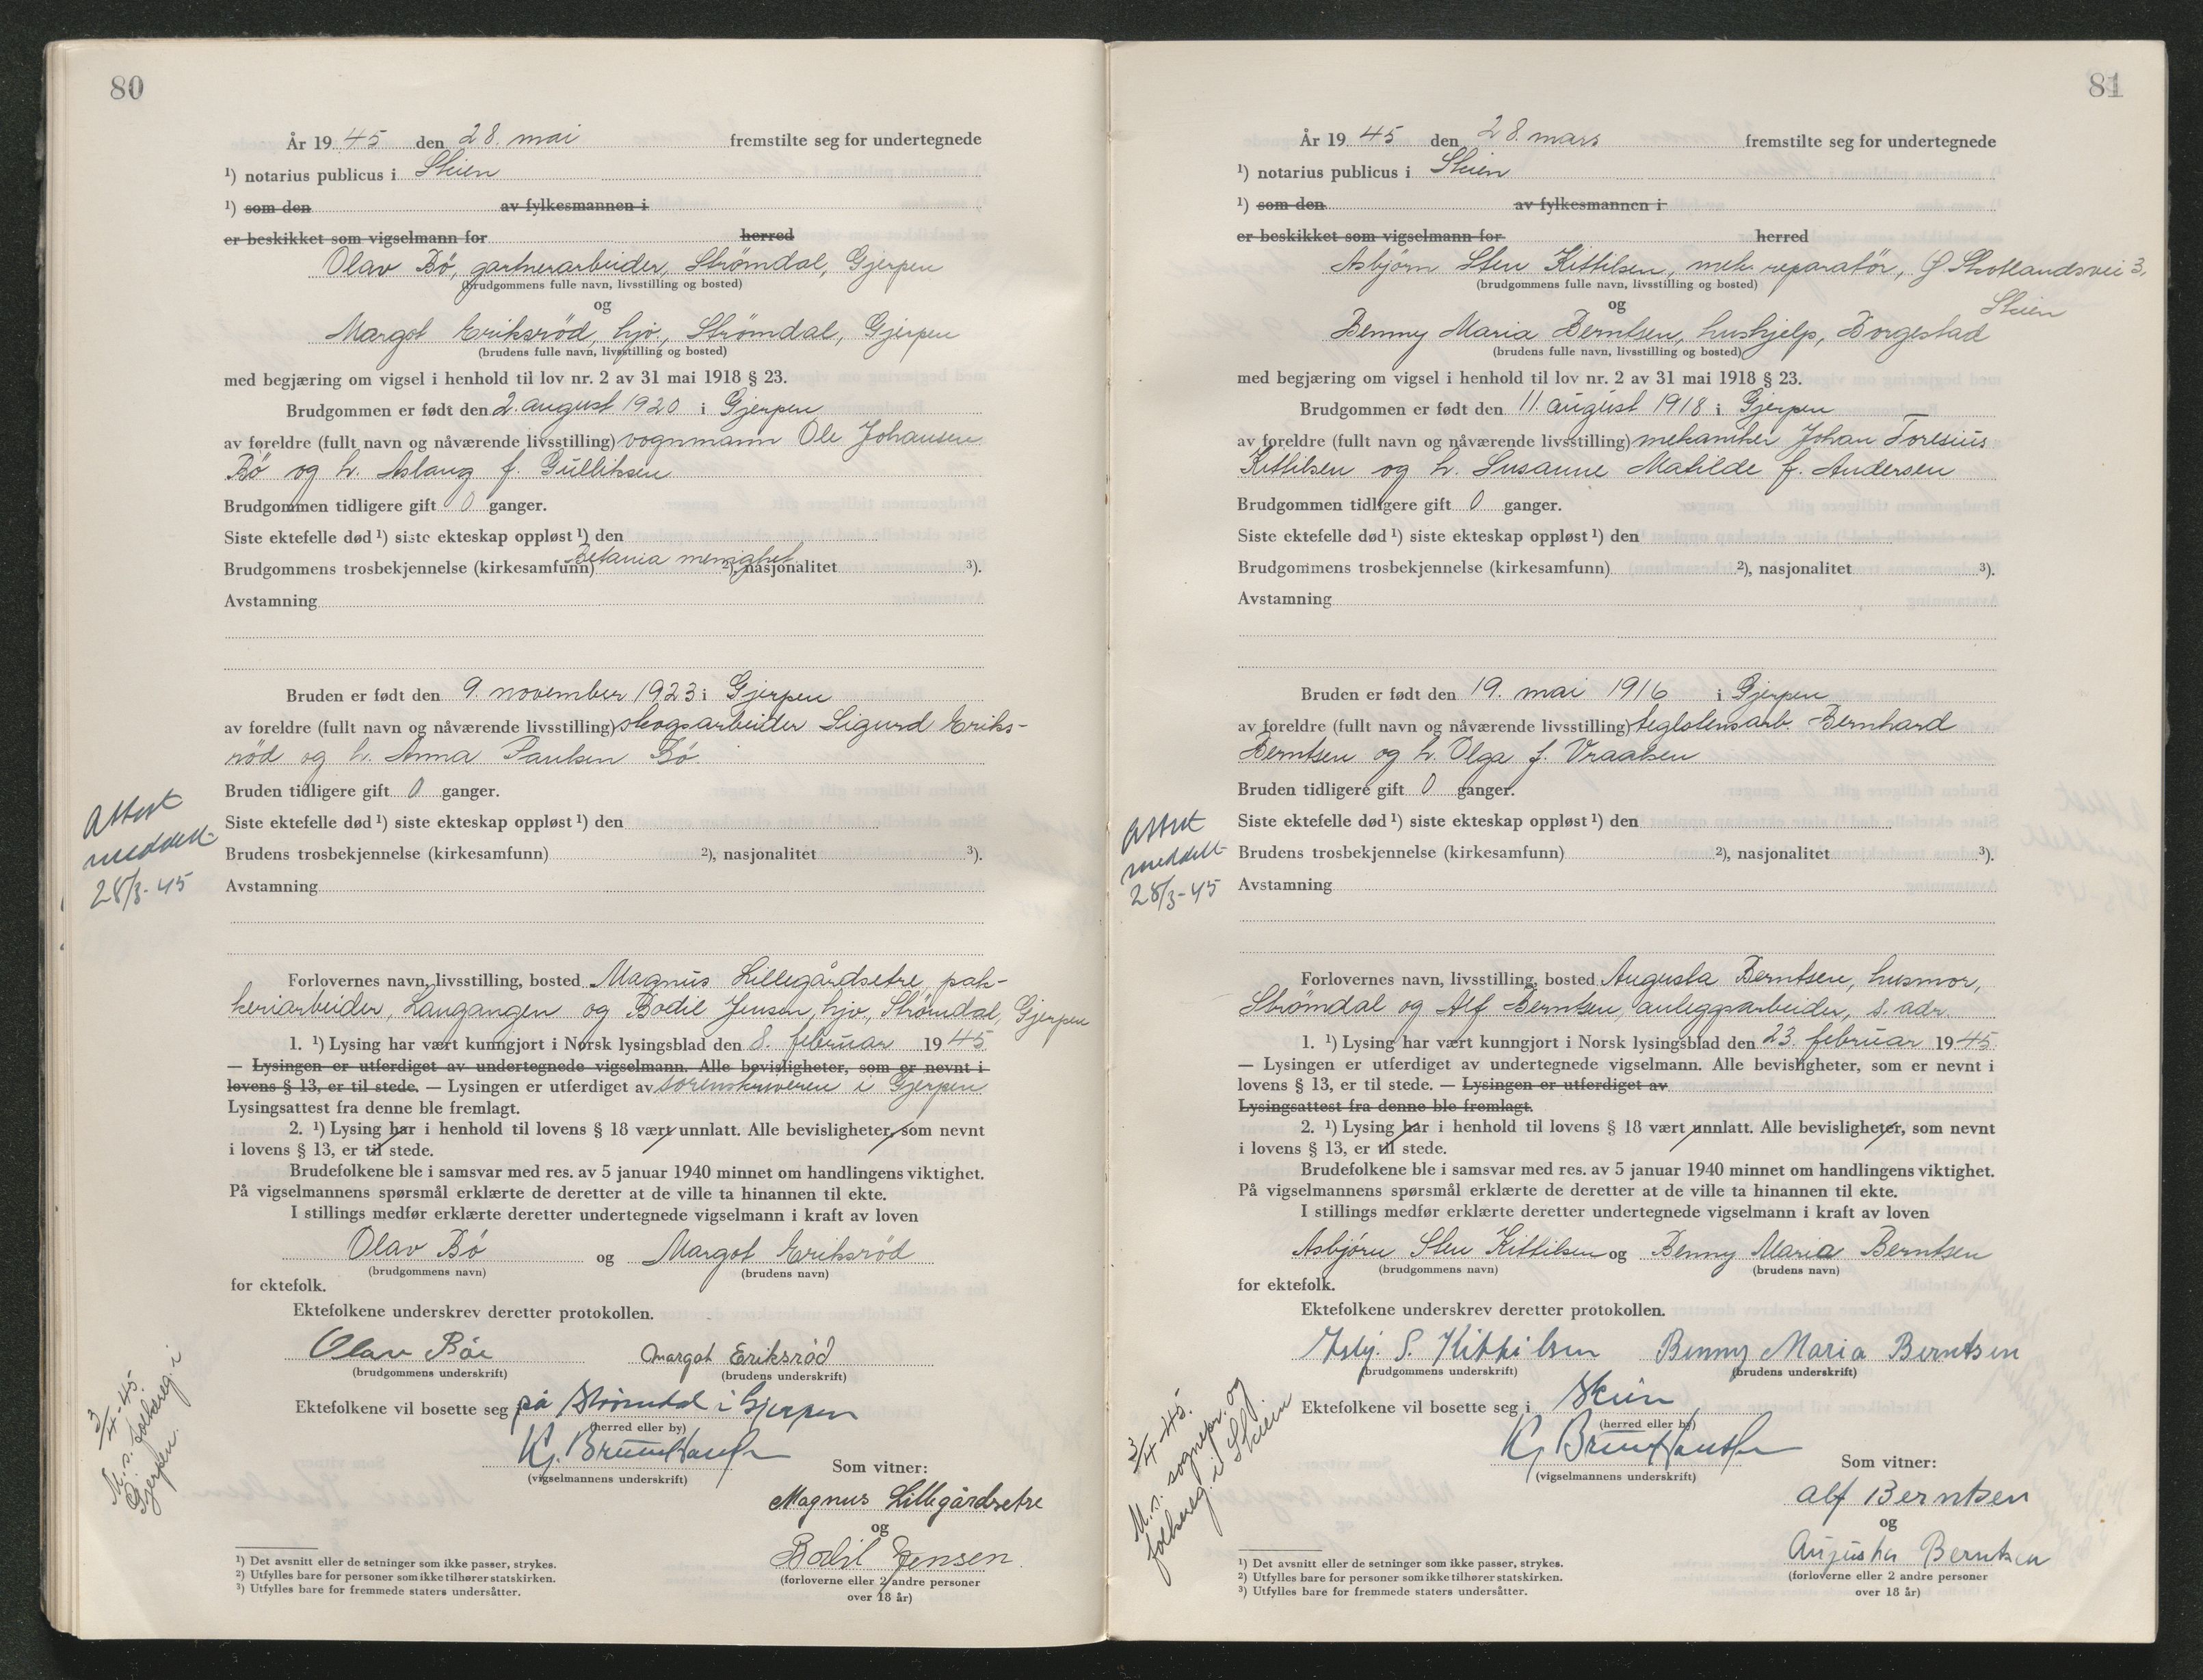 80
År 19 45 den 28. mai fremstilte seg for undertegnede
¹) notarius publicus i Skien
¹) som den av fylkesmannen i
er beskikket som vigselmann for herred
Olav Bö, gartnerarbeider, Strömdal, Gjerpen
(brudgommens fulle navn, livsstilling og bosted)
og
Margot Eriksröd, hjv., Strömdal, Gjerpen
(brudens fulle navn, livsstilling og bosted)
med begjæring om vigsel i henhold til lov nr. 2 av 31 mai 1918 § 23.
Brudgommen er født den 2. august 1920 i Gjerpen
av foreldre (fullt navn og nåværende livsstilling) vognmann Ole Johansen
Bö og h. Aslaug f. Gulliksen
Brudgommen tidligere gift 0 ganger.
Siste ektefelle død ¹) siste ekteskap oppløst ¹) den
Brudgommens trosbekjennelse (kirkesamfunn) Betania menighet ²), nasjonalitet ³).
Avstamning
Bruden er født den 9. november 1923 i Gjerpen
av foreldre (fullt navn og nåværende livsstilling) skogsarbeider Sigurd Eriks-
röd og h. Anna Paulsen Bö
Bruden tidligere gift 0 ganger.
Siste ektefelle død ¹) siste ekteskap oppløst ¹) den
Brudens trosbekjennelse (kirkesamfunn) ²), nasjonalitet ³).
Avstamning
Attest
meddelt
28/3-45
Forlovernes navn, livsstilling, bosted Magnus Lillegårdsetre, pak-
keriarbeider, Langangen og Bodil Jensen, hjv., Strömdal, Gjerpen
1. ¹) Lysing har vært kunngjort i Norsk lysingsblad den 8. februar 19 45
— Lysingen er utferdiget av undertegnede vigselmann. Alle bevisligheter, som er nevnt i
lovens § 13, er til stede. — Lysingen er utferdiget av sorenskriveren i Gjerpen
Lysingsattest fra denne ble fremlagt.
2. ¹) Lysing har i henhold til lovens § 18 vært unnlatt. Alle bevisligheter, som nevnt
i lovens § 13, er til stede.
Brudefolkene ble i samsvar med res. av 5 januar 1940 minnet om handlingens viktighet.
På vigselmannens spørsmål erklærte de deretter at de ville ta hinannen til ekte.
I stillings medfør erklærte deretter undertegnede vigselmann i kraft av loven
Olav Bö og Margot Eriksröd
(brudgommens navn) (brudens navn)
for ektefolk.
Ektefolkene underskrev deretter protokollen.
Olav Böe Margot Eriksrød
(brudgommens underskrift) (brudens underskrift)
Ektefolkene vil bosette seg på Strömdal i Gjerpen
(herred eller by)
Kj. Bruun Hansen
(vigselmannens underskrift)
Som vitner:
Magnus Lillegårdsetre
og
Bodil Jensen.
(forloverne eller 2 andre personer
over 18 år)
3/4-45.
M. s. folkereg. i
Gjerpen.
¹) Det avsnitt eller de setninger som ikke passer, strykes.
²) Utfylles bare for personer som ikke tilhører statskirken.
³) Utfylles bare for fremmede staters undersåtter.
81
År 19 45 den 28. mars fremstilte seg for undertegnede
¹) notarius publicus i Skien
¹) som den av fylkesmannen i
er beskikket som vigselmann for herred
Asbjörn Sten Kittilsen, mek. reparatör, G. Skotlandsvei 3,
Skien
(brudgommens fulle navn, livsstilling og bosted)
og
Benny Maria Berntsen, hushjelp, Borgestad
(brudens fulle navn, livsstilling og bosted)
med begjæring om vigsel i henhold til lov nr. 2 av 31 mai 1918 § 23.
Brudgommen er født den 11. august 1918 i Gjerpen
av foreldre (fullt navn og nåværende livsstilling) mekaniker Johan Toresius
Kittilsen og h. Susanne Matilde f. Andersen
Brudgommen tidligere gift 0 ganger.
Siste ektefelle død ¹) siste ekteskap oppløst ¹) den
Brudgommens trosbekjennelse (kirkesamfunn) ²), nasjonalitet ³).
Avstamning
Bruden er født den 19. mai 1916 i Gjerpen
av foreldre (fullt navn og nåværende livsstilling) teglstensarb. Bernhard
Berntsen og h. Olga f. Vraalsen
Bruden tidligere gift 0 ganger.
Siste ektefelle død ¹) siste ekteskap oppløst ¹) den
Brudens trosbekjennelse (kirkesamfunn) ²), nasjonalitet ³).
Avstamning
Attest
meddelt
28/3-45
Forlovernes navn, livsstilling, bosted Augusta Berntsen, husmor,
Strömdal og Alf Berntsen, anleggsarbeider, s. adr.
1. ¹) Lysing har vært kunngjort i Norsk lysingsblad den 23. februar 19 45
— Lysingen er utferdiget av undertegnede vigselmann. Alle bevisligheter, som er nevnt i
lovens § 13, er til stede. — Lysingen er utferdiget av
Lysingsattest fra denne ble fremlagt.
2. ¹) Lysing har i henhold til lovens § 18 vært unnlatt. Alle bevisligheter, som nevnt
i lovens § 13, er til stede.
Brudefolkene ble i samsvar med res. av 5 januar 1940 minnet om handlingens viktighet.
På vigselmannens spørsmål erklærte de deretter at de ville ta hinannen til ekte.
I stillings medfør erklærte deretter undertegnede vigselmann i kraft av loven
Asbjörn Sten Kittilsen og Benny Maria Berntsen
(brudgommens navn) (brudens navn)
for ektefolk.
Ektefolkene underskrev deretter protokollen.
Asbj. S. Kittilsen Benny Maria Berntsen
(brudgommens underskrift) (brudens underskrift)
Ektefolkene vil bosette seg i Skien
(herred eller by)
Kj Bruun Hansen
(vigselmannens underskrift)
Som vitner:
Alf Berntsen
og
Augusta Berntsen
(forloverne eller 2 andre personer
over 18 år)
3/4-45.
M. s. sognepr. og
folkereg. i Skien
¹) Det avsnitt eller de setninger som ikke passer, strykes.
²) Utfylles bare for personer som ikke tilhører statskirken.
³) Utfylles bare for fremmede staters undersåtter.